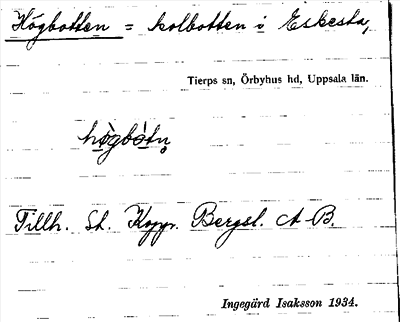 Högbotten = kolbotten i Eskesta,
Tierps sn, Örbyhus hd, Uppsala län.
hø̀gbòtn̥
Tillh. St. Koppr. Bergsl. A B.
Ingegärd Isaksson 1934.